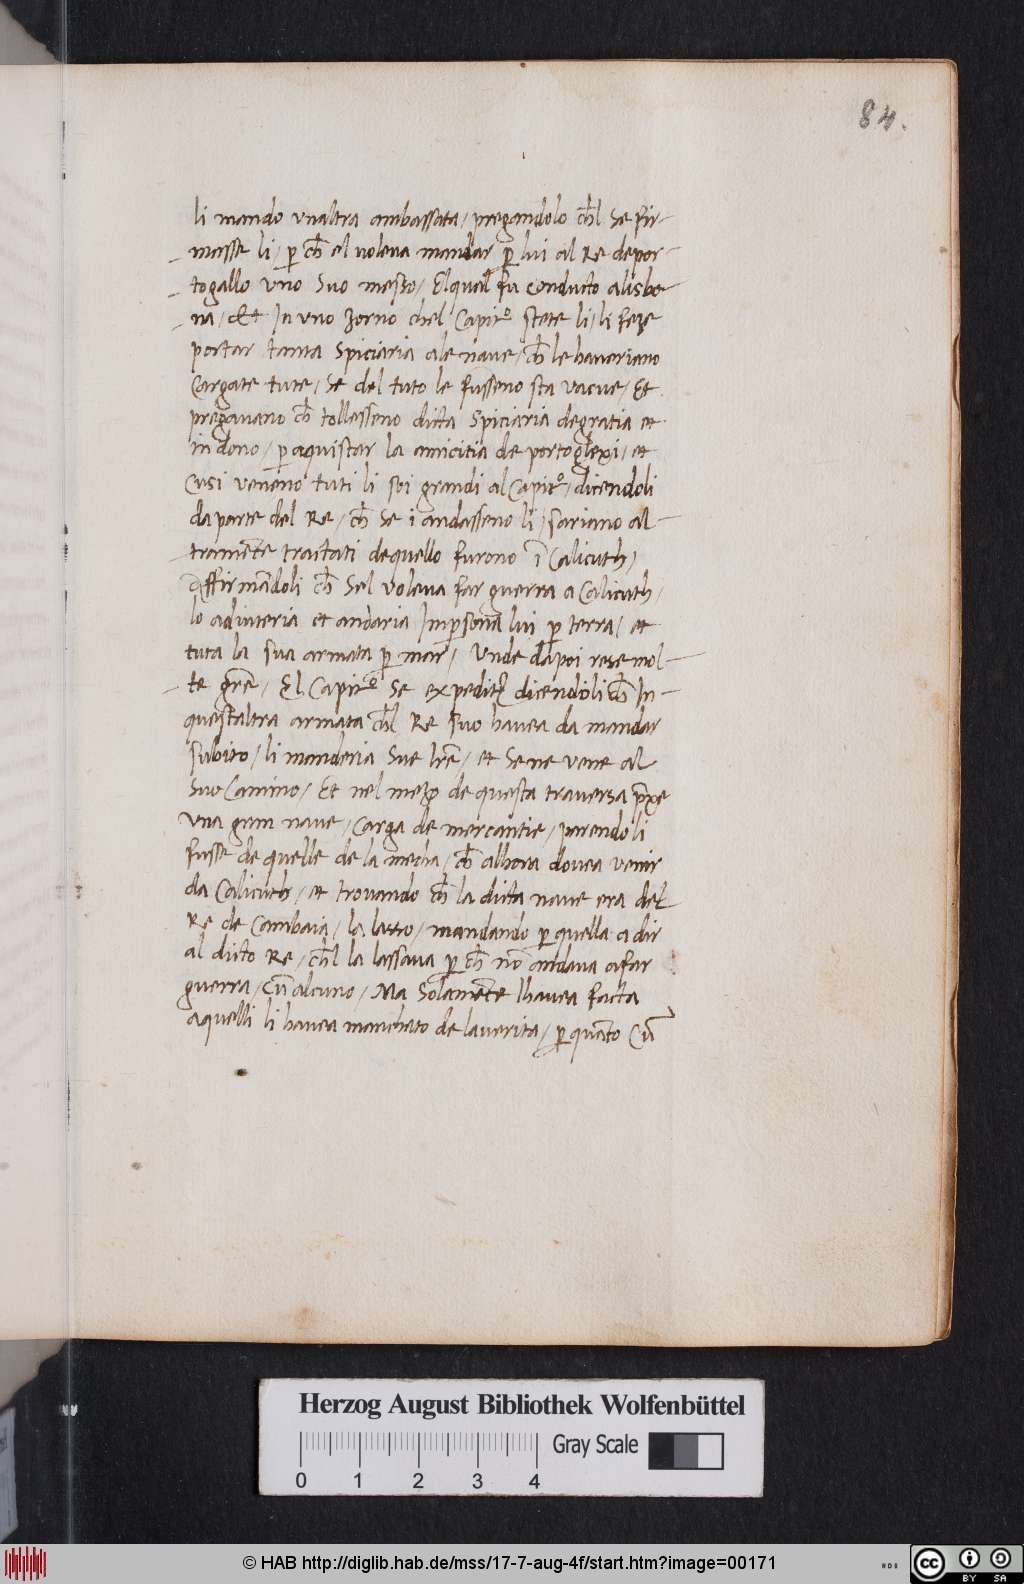 84.
li mando vnaltra ambassata / pregandolo ch̄l se fir-
masse li / p̱ ch̄ el uoleua mandar p̱ lui al Re de por-
togallo vno suo messo / El qual fu conducto a lisbo-
na / Et In vno zorno chel Capitº stete li / li feze
portar tanta spiciaria a le naue / ch̄ le haueriano
Cargate tute / se del tuto le fusseno sta vacue / Et
pregauano ch̄ tollesseno dicta spiciaria de gratia et
in dono / p̱ aquistar la amicitia de portoglexi / et
Cusi veneno tuti li soi grandi al Capitº / dicendoli
da parte del Re / ch̄ se i andasseno li / sariano al-
tramēte tractati de quello furono ī Calicuth /
Affirmādoli ch̄ sel voleua far guerra a Calicuth /
lo adiuteria et andaria Imp̱sona lui p̱ terra / et
tuta la sua armata p̱ mar / Unde dapoi rese mol-
te gr̄e / El Capitº se expedite dicendoli ch̄ In
questaltra armata ch̄l Re suo hauea da mandar
subito / li manderia sue lr̄e / et se ne vene al
suo Camino / Et nel mezo de questa trauersa p̄xe
vna gran naue / carga de mercantie / parendoli
fusse de quelle de la mecha / ch̄ alhora douea venir
da Calicuth / et trouando ch̄ la dicta naue era del
Re de Cambaia / la lasso / mandando p̱ quella a dir
al dicto Re / ch̄l la lassaua p̱ ch̄ nō andaua a far
guerra / Cū alcuno / Ma Solamēte lhauea facta
a quelli li hauea manchato de la uerita / p̱ quāto Cū
Herzog August Bibliothek Wolfenbüttel
Gray Scale
0 1 2 3 4
© HAB http://diglib.hab.de/mss/17-7-aug-4f/start.htm?image=00171
cc BY SA